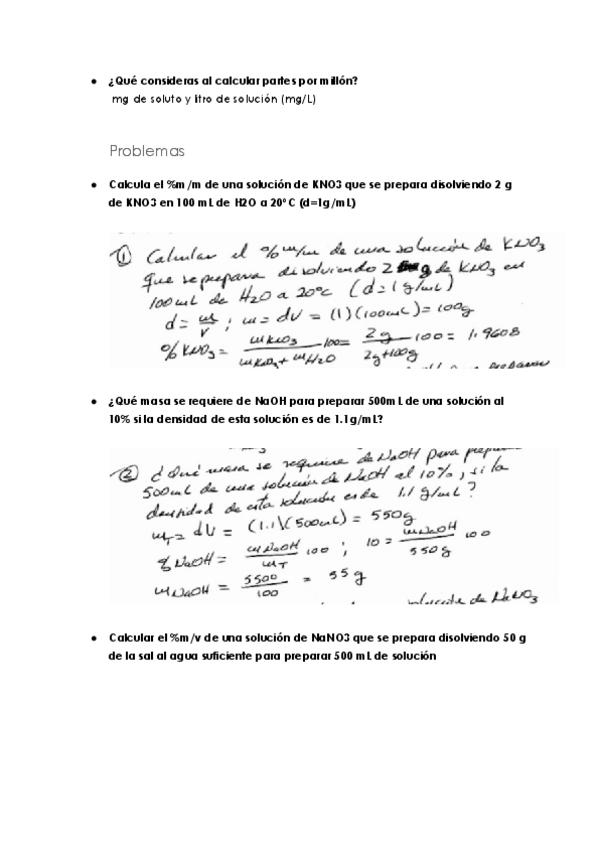 ¿Qué consideras al calcular partes por millón?
mg de soluto y litro de solución (mg/L)
Problemas
Calcula el %m/m de una solución de KNO3 que se prepara disolviendo 2 g
de KNO3 en 100 mL de H2O a 20°C (d=1g/mL)
① Calcular el % m/m de una solución de KNO3
que se prepara disolviendo 2 g de KNO3 en
100mL de H2O a 20°C (d=1g/mL)
d= m/v ; m= dV = (1)(100mL)= 100g
% KNO3 = mKNO3 / mKNO3 + mH2O 100= 2g / 2g+100g 100= 1.9608
¿Qué masa se requiere de NaOH para preparar 500mL de una solución al
10% si la densidad de esta solución es de 1.1g/mL?
② ¿Qué masa se requiere de NaOH para
500mL de una solución de NaOH al 10%, si la
densidad de esta solución es de 1.1 g/mL?
mT= dV = (1.1)(500mL) = 550g
% NaOH = mNaOH / mT 100 ; 10 = mNaOH / 550g 100
mNaOH = 5500 / 100 = 55 g
solución de NaNO3
Calcular el %m/v de una solución de NaNO3 que se prepara disolviendo 50 g
de la sal al agua suficiente para preparar 500 mL de solución